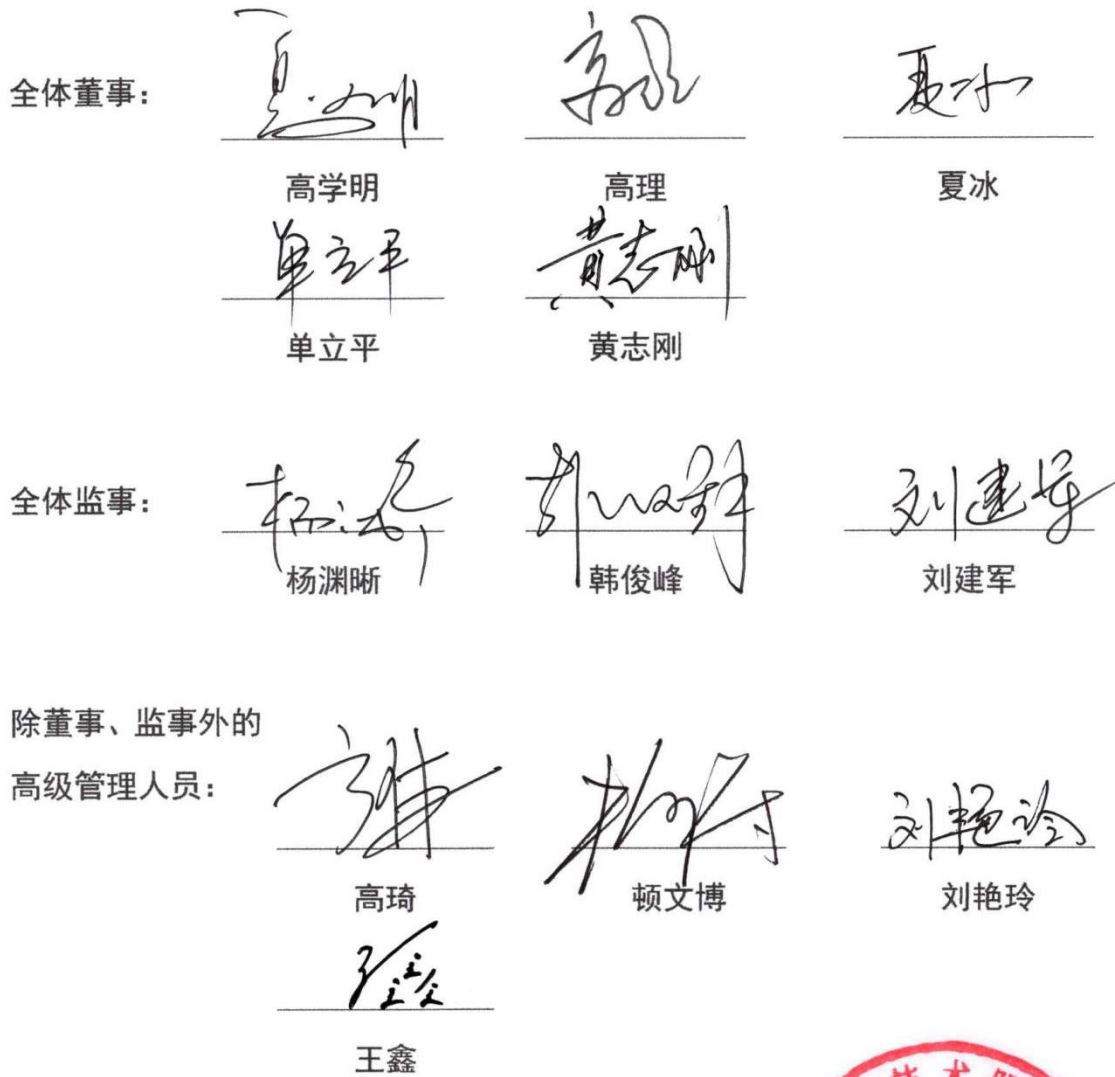 全体董事：
高学明 高理 夏冰
单立平 黄志刚
全体监事：
杨渊晰 韩俊峰 刘建军
除董事、监事外的
高级管理人员：
高琦 顿文博 刘艳玲
王鑫
技术